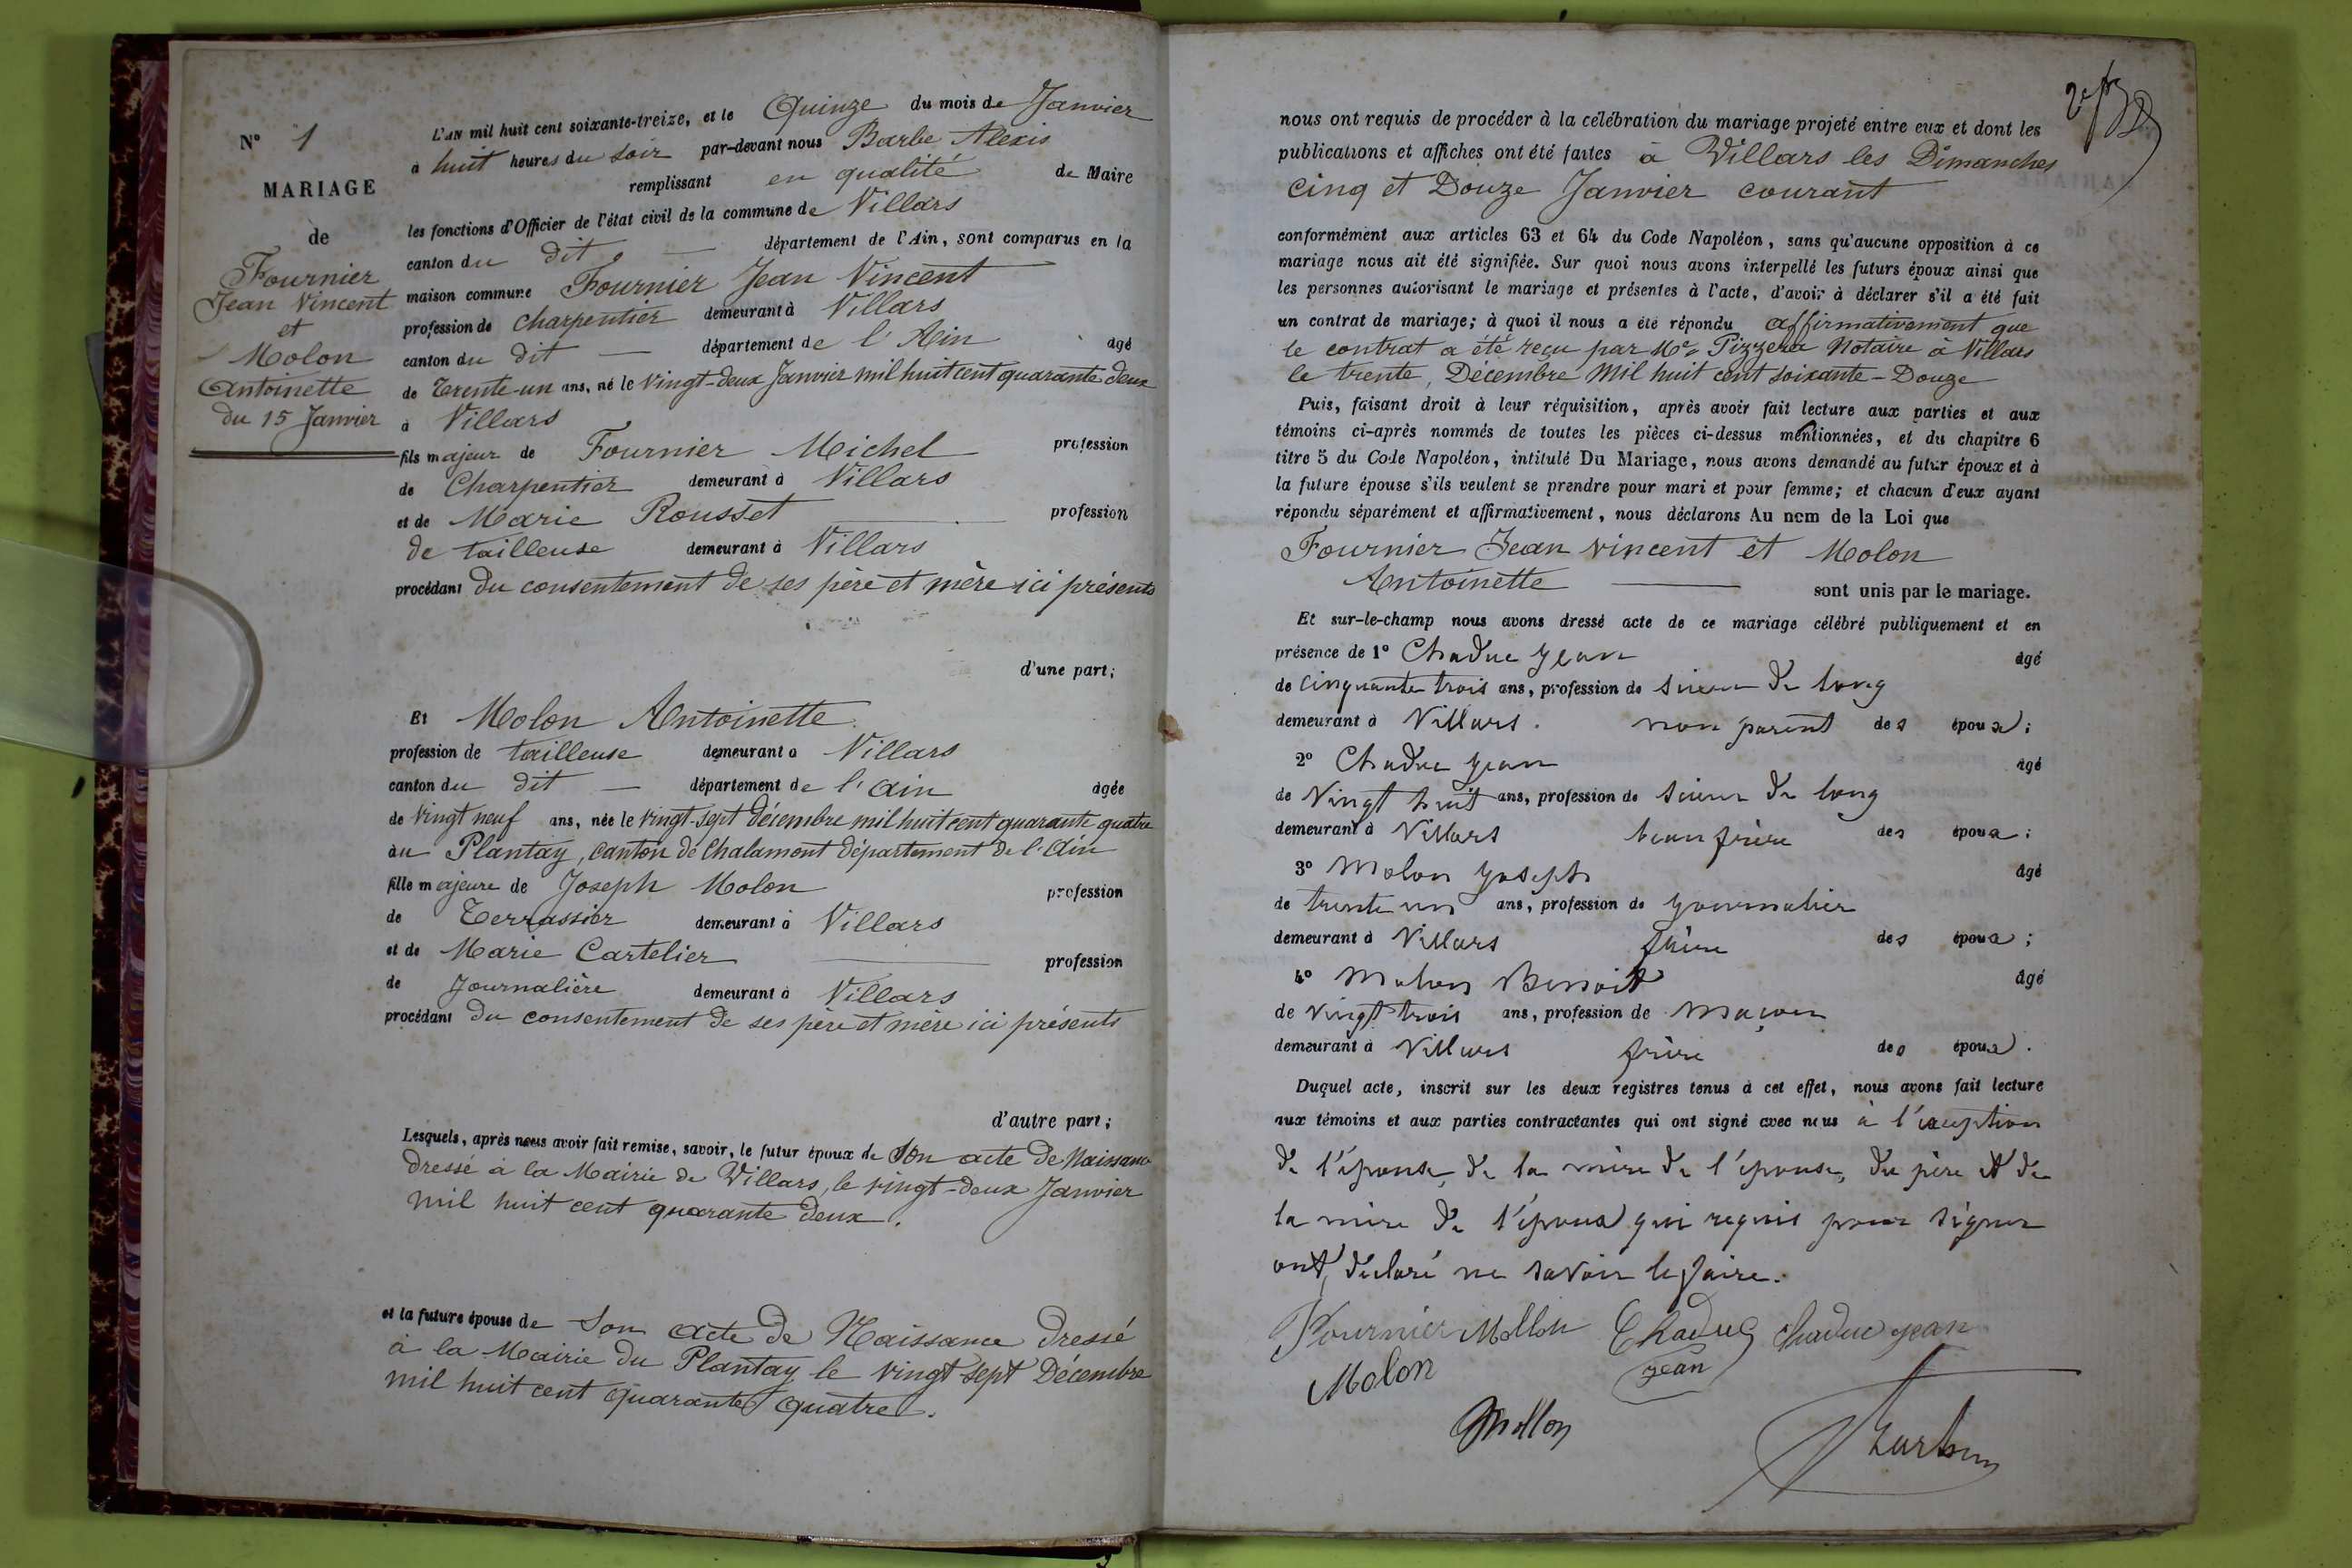 N° 1
MARIAGE
de
Fournier
Jean Vincent
et
Molon
Antoinette
du 15 Janvier
L'AN mil huit cent soixante-treize, et le Quinze du mois de Janvier
à huit heures du soir par-devant nous Barbe Alexis
remplissant en qualité de Maire
les fonctions d'Officier de l'état civil de la commune de Villars
canton du dit département de l'Ain, sont comparus en la
maison commune Fournier Jean Vincent
profession de charpentier demeurant à Villars
canton du dit — département de l'Ain agé
de Trente-un ans, né le vingt-deux Janvier mil huit cent quarante deux
à Villars
fils majeur de Fournier Michel profession
de Charpentier demeurant à Villars
et de Marie Rousset profession
de tailleuse demeurant à Villars
procédant du consentement de ses père et mère ici présents
d'une part;
Et Molon Antoinette
profession de tailleuse demeurant à Villars
canton du dit — département de l'Ain agée
de vingt neuf ans, née le vingt-sept décembre mil huit cent quarante quatre
au Plantay, canton de Chalamont département de l'Ain
fille majeure de Joseph Molon profession
de Terrassier demeurant à Villars
et de Marie Cartelier profession
de Journalière demeurant à Villars
procédant du consentement de ses père et mère ici présents
d'autre part;
Lesquels, après nous avoir fait remise, savoir, le futur époux de Son acte de Naissance
dressé à la Mairie de Villars, le vingt-deux Janvier
mil huit cent quarante deux.
et la future épouse de Son acte de Naissance dressé
à la Mairie du Plantay le vingt-sept Décembre
mil huit cent quarante quatre.
nous ont requis de procéder à la célébration du mariage projeté entre eux et dont les
publications et affiches ont été faites à Villars les Dimanches
cinq et Douze Janvier courant
conformément aux articles 63 et 64 du Code Napoléon, sans qu'aucune opposition à ce
mariage nous ait été signifiée. Sur quoi nous avons interpellé les futurs époux ainsi que
les personnes autorisant le mariage et présentes à l'acte, d'avoir à déclarer s'il a été fait
un contrat de mariage; à quoi il nous a été répondu affirmativement que
le contrat a été reçu par Me Pizzera Notaire à Villars
le trente, Décembre Mil huit cent soixante-Douze
Puis, faisant droit à leur réquisition, après avoir fait lecture aux parties et aux
témoins ci-après nommés de toutes les pièces ci-dessus mentionnées, et du chapitre 6
titre 5 du Code Napoléon, intitulé Du Mariage, nous avons demandé au futur époux et à
la future épouse s'ils veulent se prendre pour mari et pour femme; et chacun d'eux ayant
répondu séparément et affirmativement, nous déclarons Au nom de la Loi que
Fournier Jean Vincent et Molon
Antoinette — sont unis par le mariage.
Et sur-le-champ nous avons dressé acte de ce mariage célébré publiquement et en
présence de 1° Chaduc Jean agé
de cinquante trois ans, profession de scieur de long
demeurant à Villars. non parent des époux;
2° Chaduc Jean agé
de vingt huit ans, profession de scieur de long
demeurant à Villars beau frère des époux;
3° Molon Joseph agé
de trente un ans, profession de journalier
demeurant à Villars frère des époux;
4° Molon Benoit agé
de vingt trois ans, profession de maçon
demeurant à Villars frère des époux.
Duquel acte, inscrit sur les deux registres tenus à cet effet, nous avons fait lecture
aux témoins et aux parties contractantes qui ont signé avec nous à l'exception
de l'épouse, de la mère de l'épouse, du père et de
la mère de l'époux qui requis pour signer
ont déclaré ne savoir le faire.
Fournier Mollon Chaduc Chaduc jean
Molon jean
Mollon
Barbe